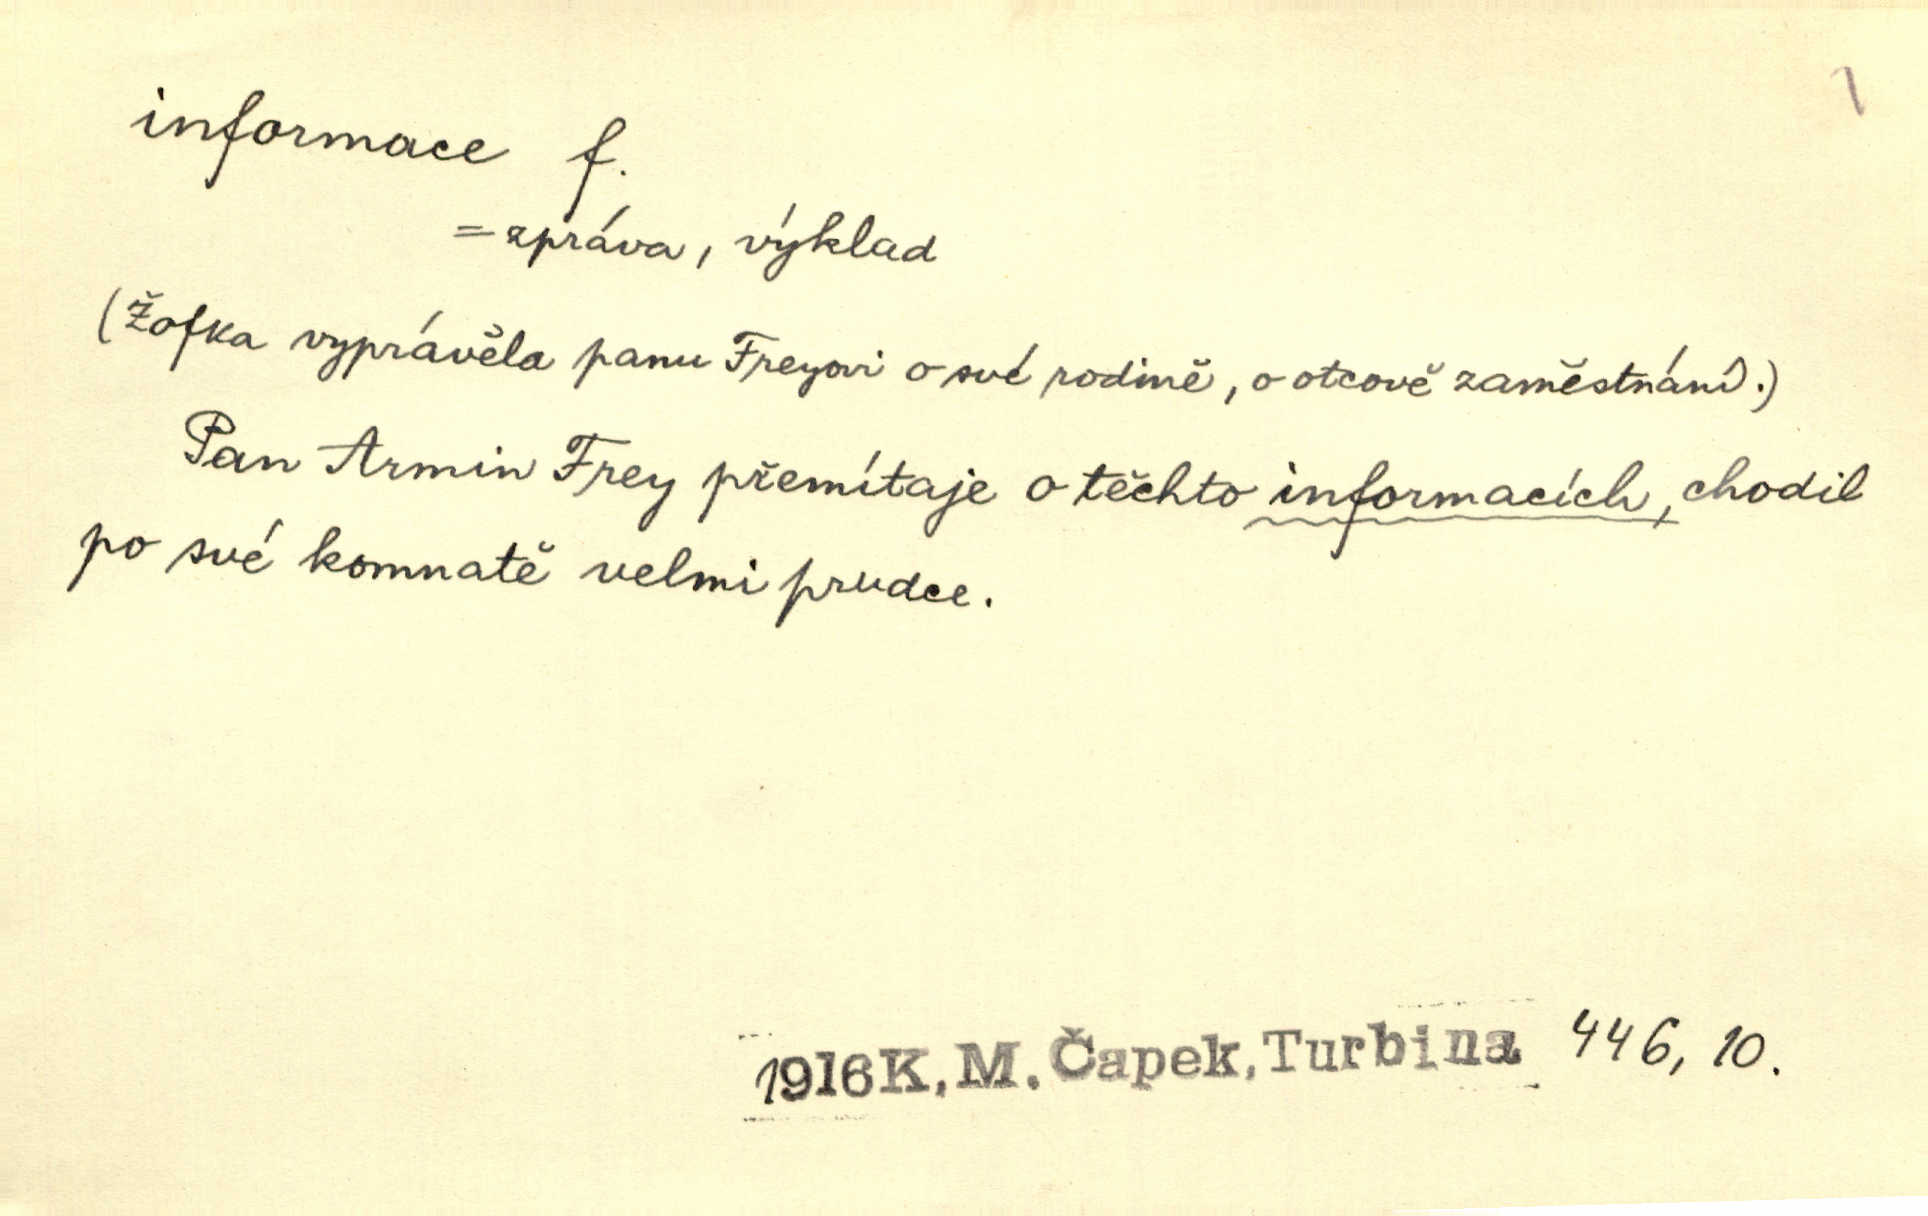 1
informace f.
= zpráva, výklad
(Žofka vyprávěla panu Freyovi o své rodině, o otcově zaměstnání.)
Pan Armin Frey přemítaje o těchto informacích, chodil
po své komnatě velmi prudce.
1916 K, M. Čapek, Turbina 446, 10.